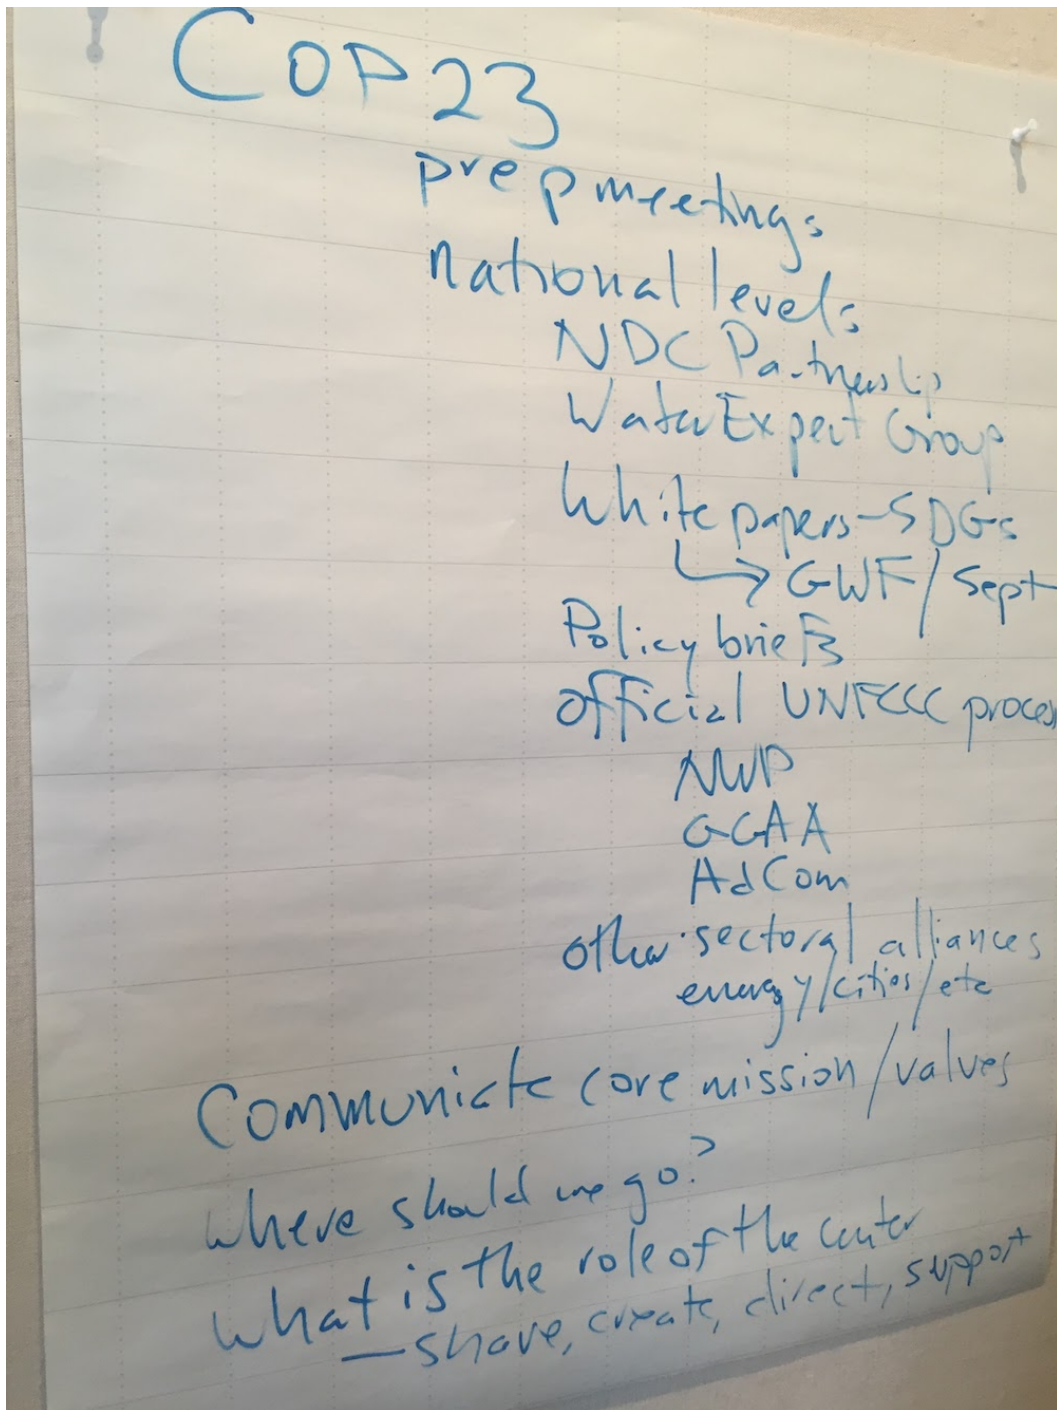 COP23
prep meetings
national levels
NDC Partnership
Water Expert Group
White papers - SDGs
→ GWF / Sept
Policy briefs
official UNFCCC process
NWP
GCAA
AdCom
other sectoral alliances
energy/cities/etc
Communicate core mission/values
where should we go?
what is the role of the center
— share, create, direct, support